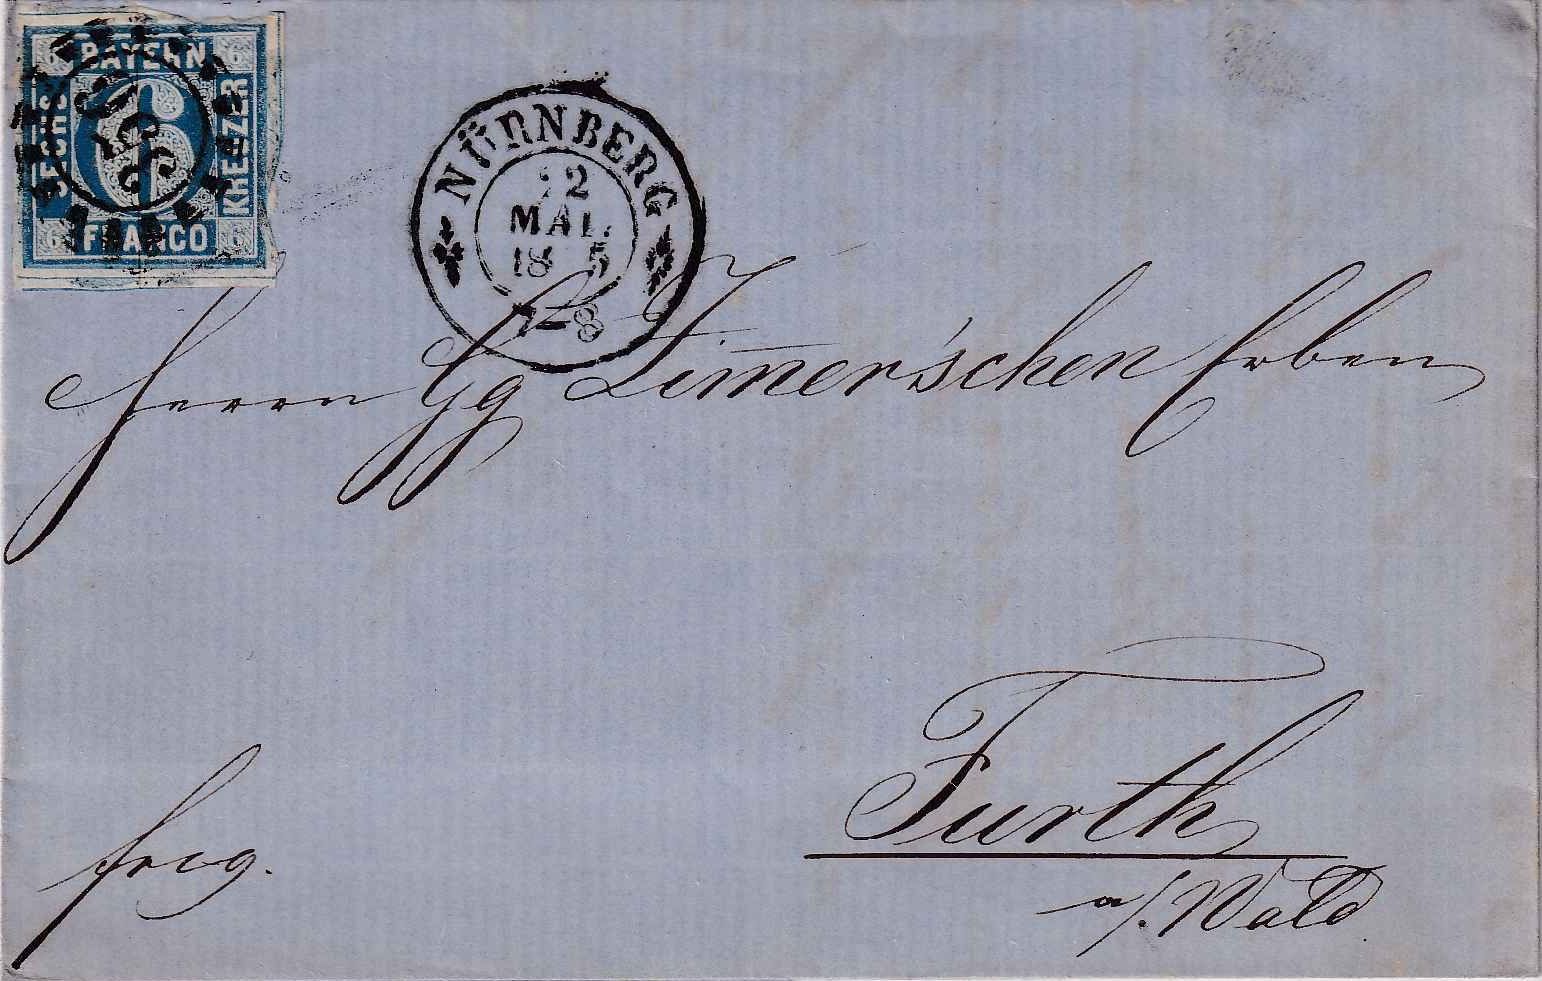 BAYERN
6 6
SECHS
KREUZER
6 6
6
FRANCO
NÜRNBERG
MAI.
18 5
7-8
Herrn Gg Zim̅er'schen Erben
Furth
a/. Wald
frcg.